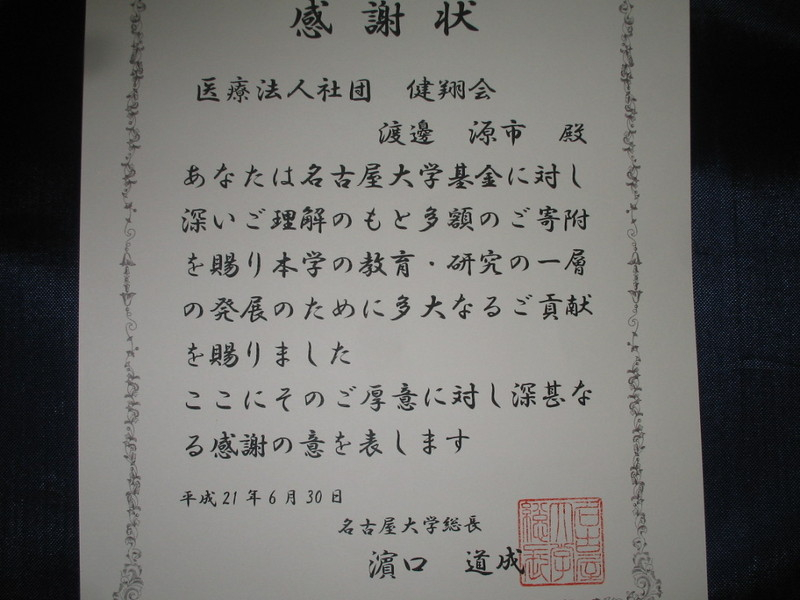 感謝状
医療法人社団 健翔会
渡邊 源市 殿
あなたは名古屋大学基金に対し
深いご理解のもと多額のご寄附
を賜り本学の教育・研究の一層
の発展のために多大なるご貢献
を賜りました
ここにそのご厚意に対し深甚な
る感謝の意を表します
平成21年6月30日
名古屋大学総長
濵口 道成
名古屋
大学
総長